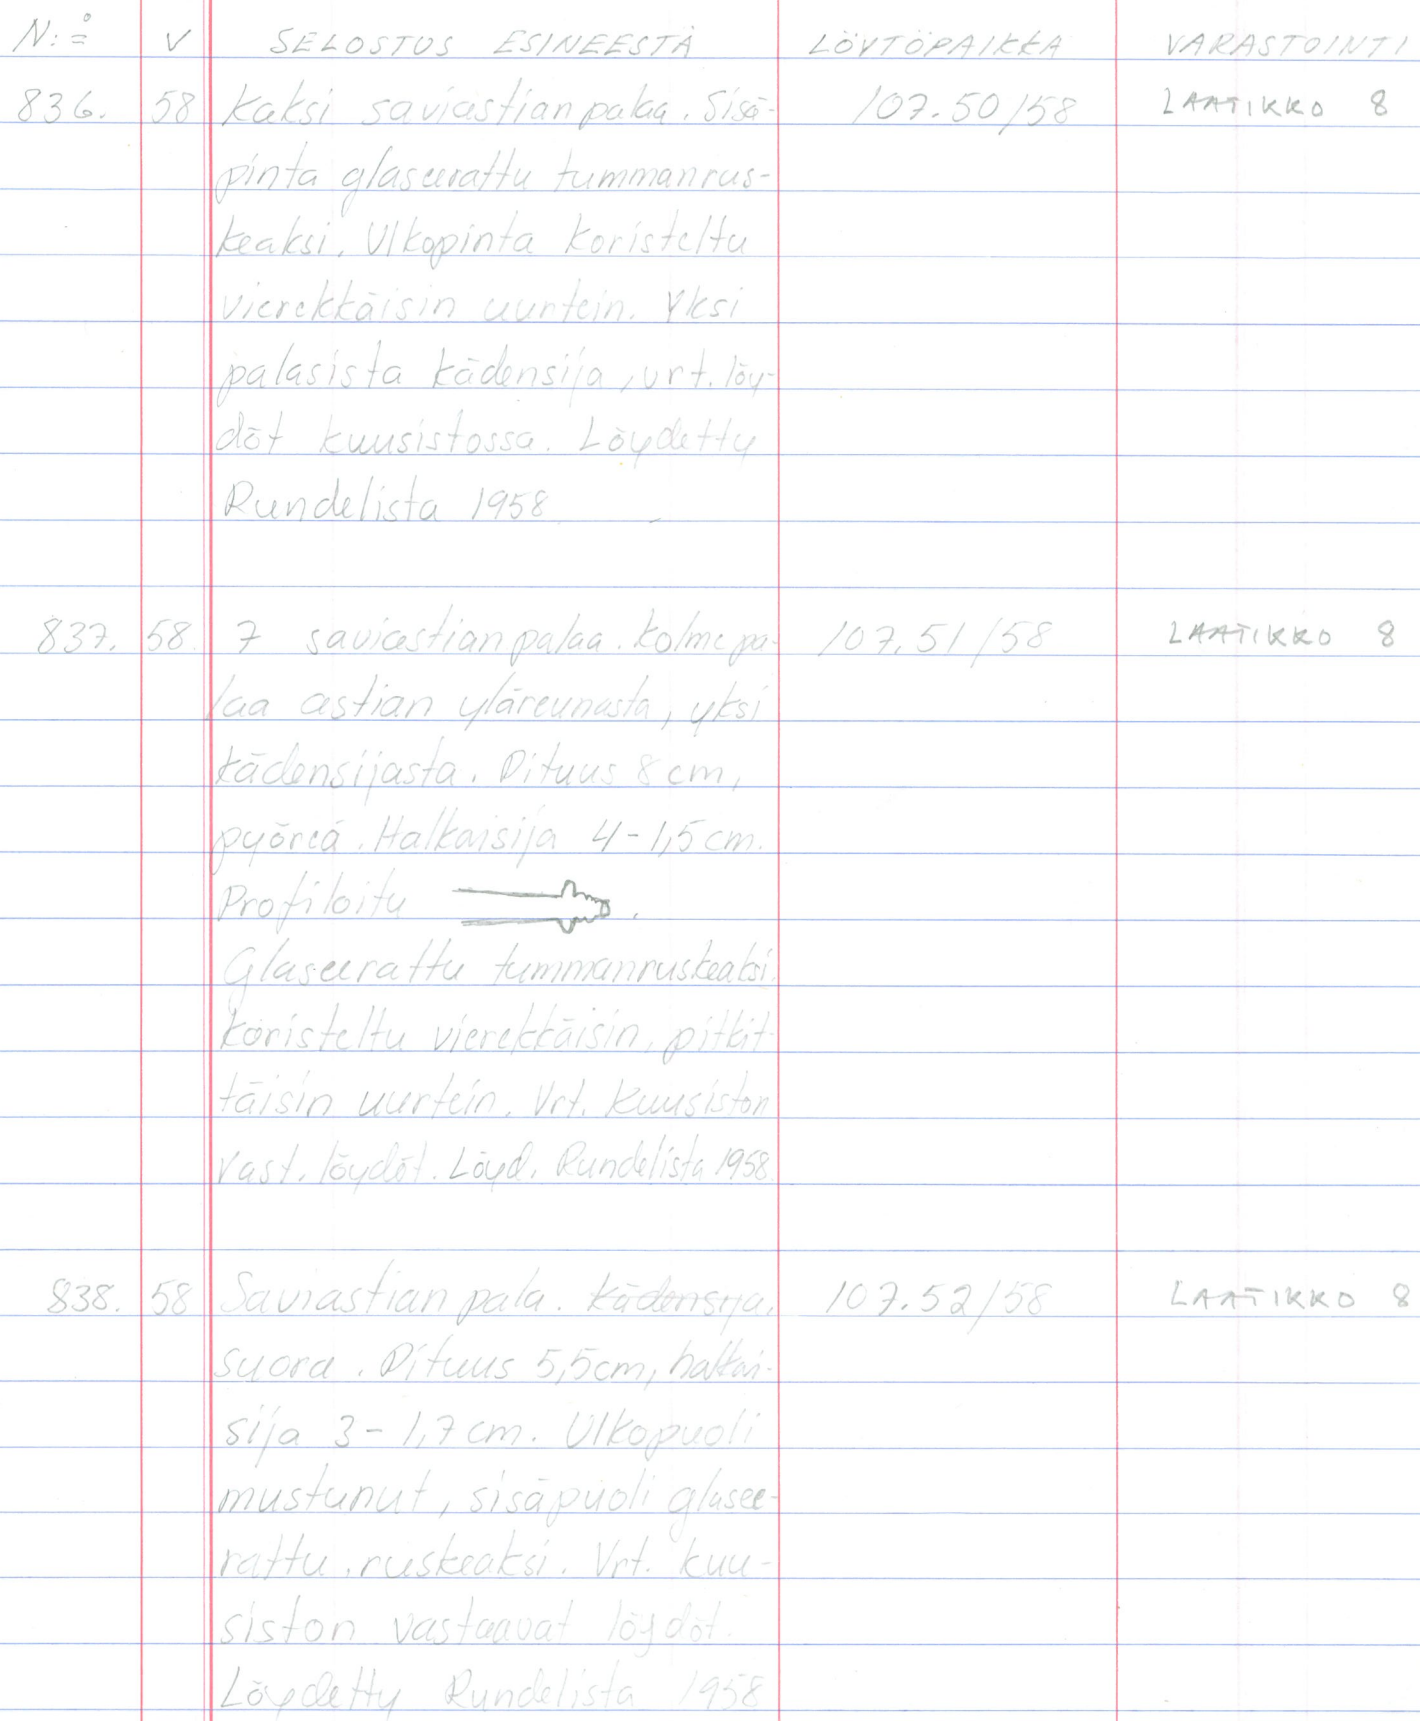 N:o V SELOSTUS ESINEESTÄ LÖYTÖPAIKKA VARASTOINTI
836. 58 Kaksi saviastian palaa. Sisä- 107.50/58 LAATIKKO 8
pinta glaseerattu tummanrus-
keaksi. Ulkopinta koristeltu
vierekkäisin uurtein. Yksi
palasista kädensija, vrt. löy-
döt Kuusistossa. Löydetty
Rundelista 1958
837. 58 7 saviastian palaa. Kolme pa- 107.51/58 LAATIKKO 8
laa astian yläreunasta, yksi
kädensijasta. Pituus 8 cm,
pyöreä. Halkaisija 4-1,5 cm.
Profiloitu .
Glaseerattu tummanruskeaksi.
Koristeltu vierekkäisin, pitkit-
täisin uurtein. Vrt. Kuusiston
vast. löydöt. Löyd. Rundelista 1958.
838. 58 Saviastian pala. Kädensija, 107.52/58 LAATIKKO 8
suora. Pituus 5,5cm, halkai-
sija 3-1,7 cm. Ulkopuoli
mustunut, sisäpuoli glasee-
rattu ruskeaksi. Vrt. Kuu-
siston vastaavat löydöt.
Löydetty Rundelista 1958